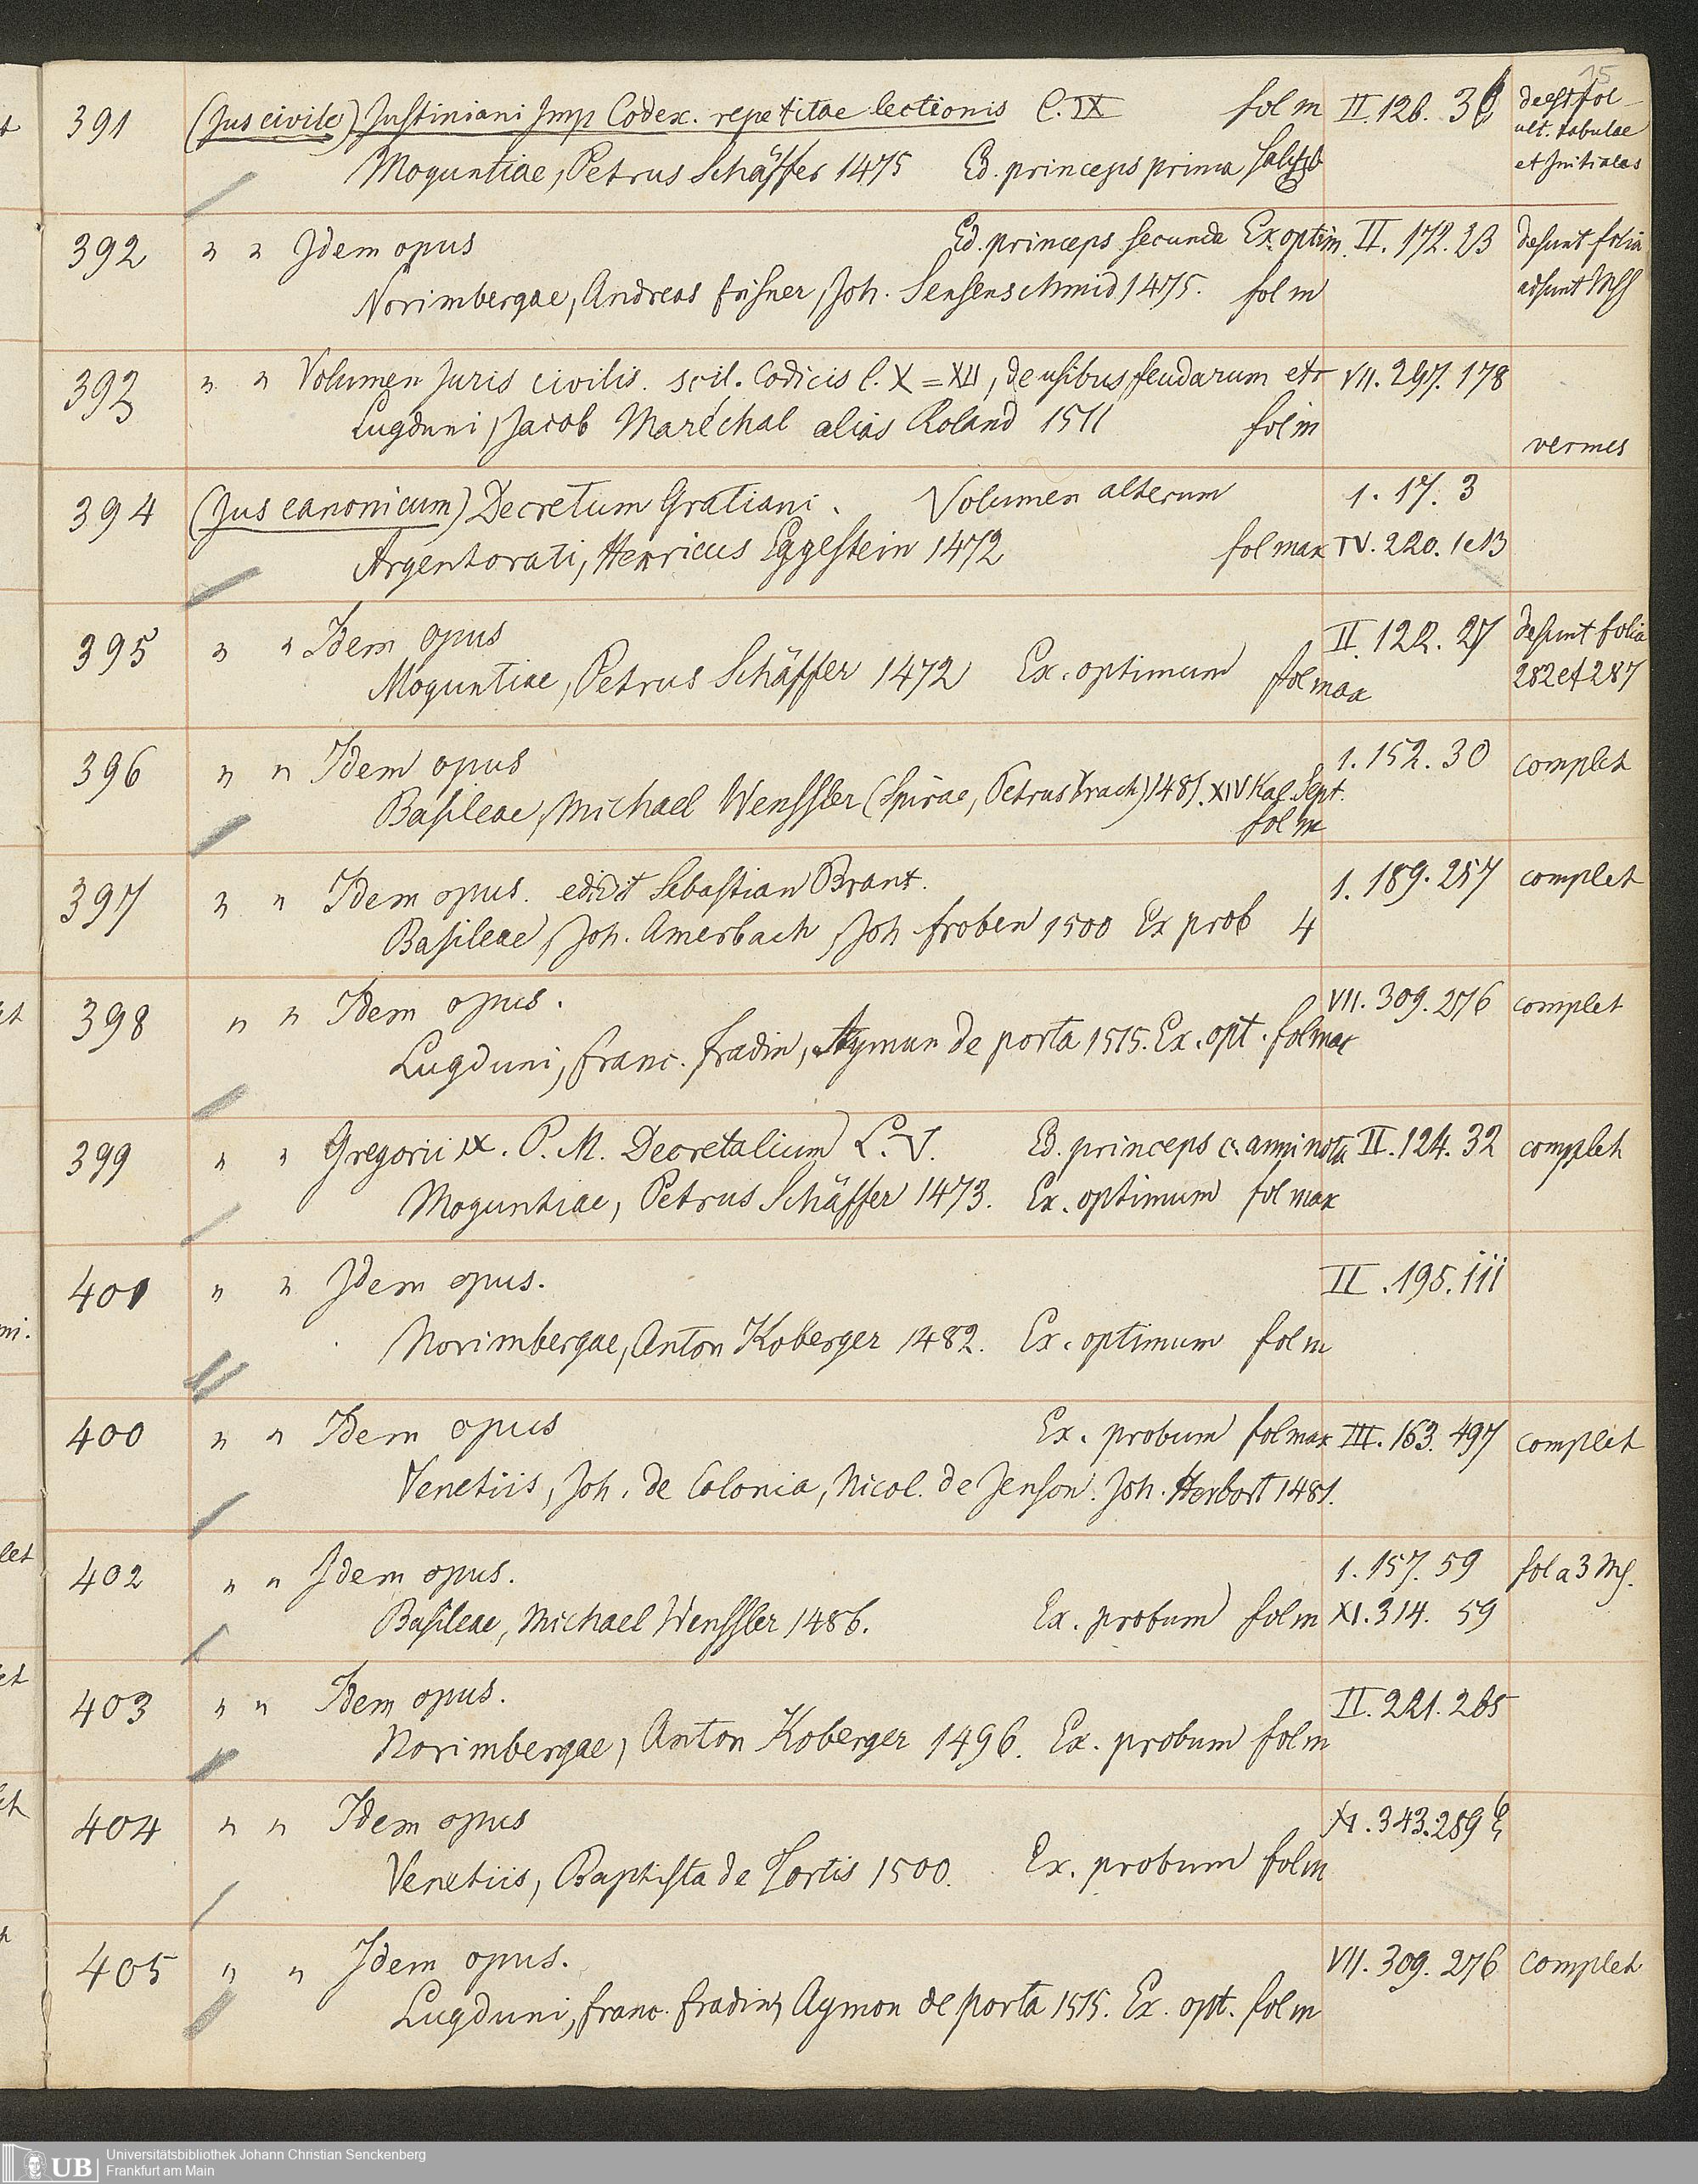 15
391 (Jus civile) Justiniani Imp Codex. repetitae lectionis l. IX fol m II. 126. 36 deest fol
ult. tabulae
Moguntiae, Petrus Schäffer 1475 Ed. princeps prima et Initiales
392 " " Idem opus Ed. princeps secunda Ex. optim. II. 172. 23 desunt folia
Norimbergae, Andreas Frisner, Joh. Sensenschmid 1475. fol m adsunt MSS
393 " " Volumen Juris civilis. scil. Codicis l. X = XII, de usibus feudarum etc VII. 297. 178
Lugduni, Jacob Maréchal alias Roland 1511 fol m vermes
394 (Jus canonicum) Decretum Gratiani. Volumen alterum 1. 17. 3
Argentorati, Henricus Eggestein 1472 fol max IV. 220. 1et3
395 " " Idem opus II. 122. 27 desunt folia
Moguntiae, Petrus Schäffer 1472 Ex. optimum fol max 282 et 287
396 " " Idem opus 1. 152. 30 complet
Basileae, Michael Wenssler (Spirae, Petrus Drach) 1481. XIV Kal. Sept.
fol m
397 " " Idem opus. edidit Sebastian Brant. 1. 189. 257 complet
Basileae, Joh. Amerbach, Joh froben 1500 Ex prob 4
398 " " Idem opus. VII. 309. 276 complet
Lugduni, franc. fradin, Aymun de porta 1515. Ex. opt. fol max
399 " " Gregorii IX. P. M. Decretalium L. V. Ed. princeps c. anni nota II. 124. 32 complet
Moguntiae, Petrus Schäffer 1473. Ex. optimum fol max
401 " " Idem opus. II. 195. iii
Norimbergae, Anton Koberger 1482. Ex. optimum fol m
400 " " Idem opus Ex. probum fol max III. 163. 497 complet
Venetiis, Joh. de Colonia, Nicol. de Jenson. Joh. Herbort 1481.
402 " " Idem opus. 1. 157. 59 fol a 3 MS.
Basileae, Michael Wenssler 1486. Ex. probum fol m XI. 314. 59
403 " " Idem opus. II. 221. 265
Norimbergae, Anton Koberger 1496. Ex. probum fol m
404 " " Idem opus XI. 343. 289
Venetiis, Baptista de Tortis 1500. Ex. probum fol m
405 " " Idem opus. VII. 309. 276 complet
Lugduni, franc. fradin, Aymon de porta 1515. Ex. opt. fol m
UB Universitätsbibliothek Johann Christian Senckenberg
Frankfurt am Main